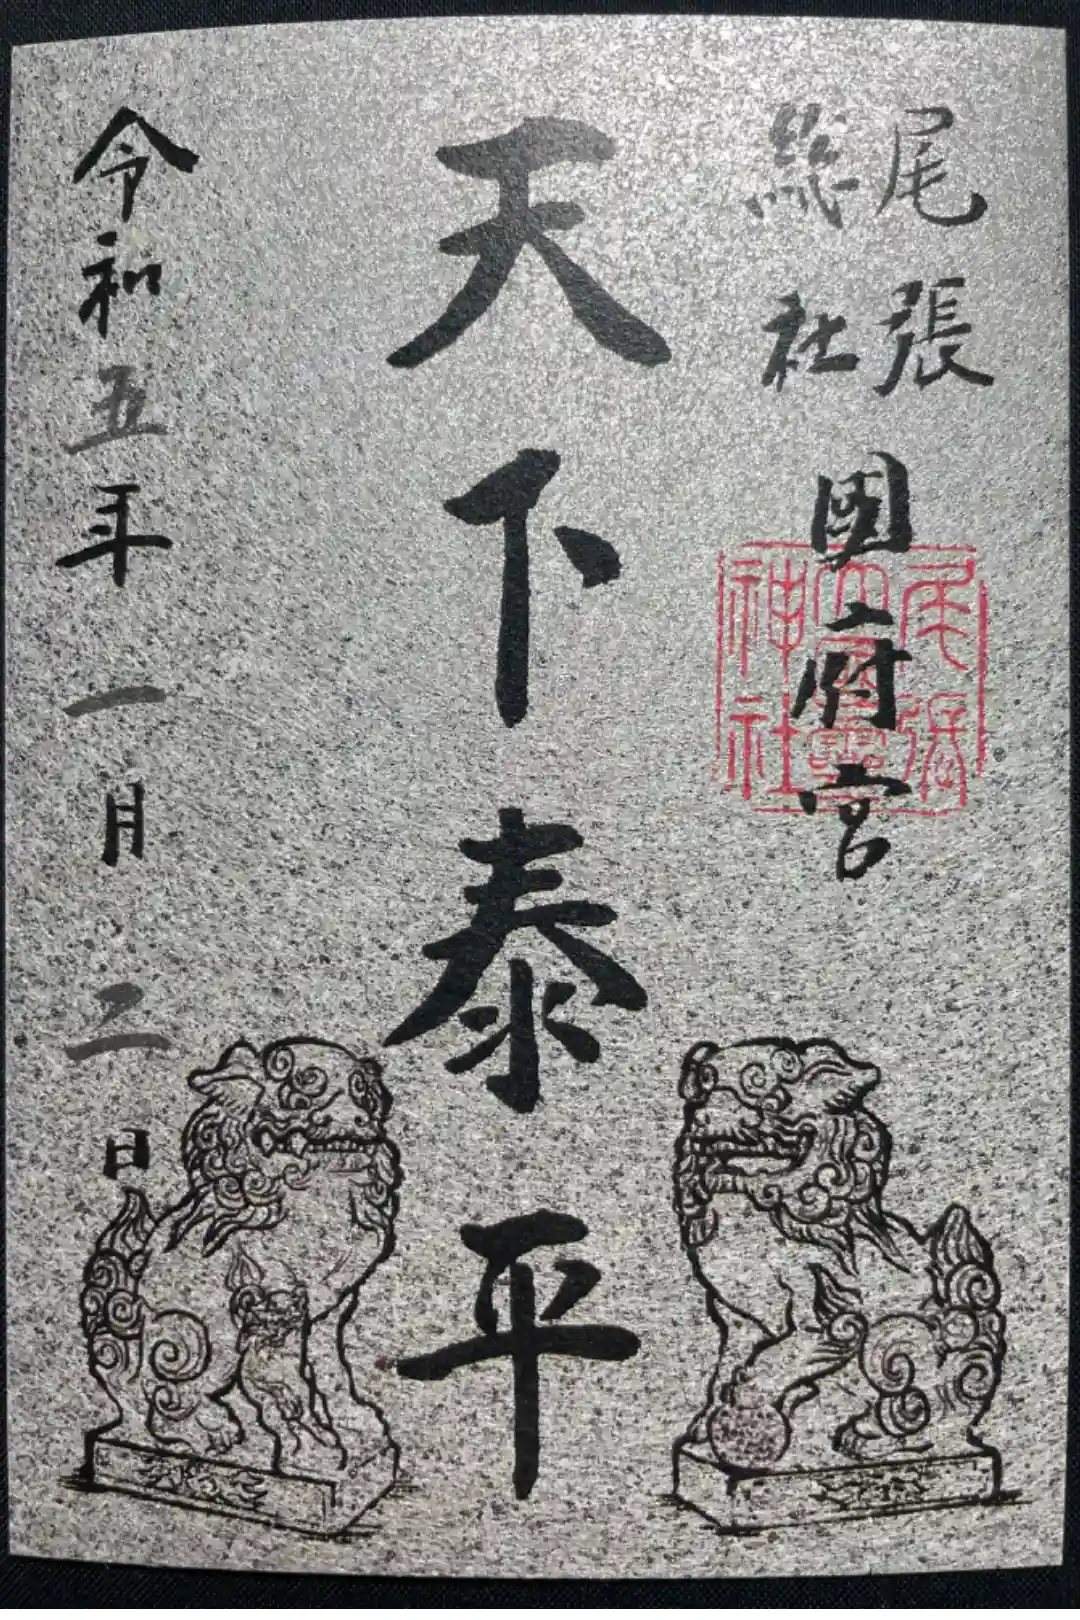 尾張
総社
國府宮
尾張
大國霊
神社
天下泰平
令和五年一月二日